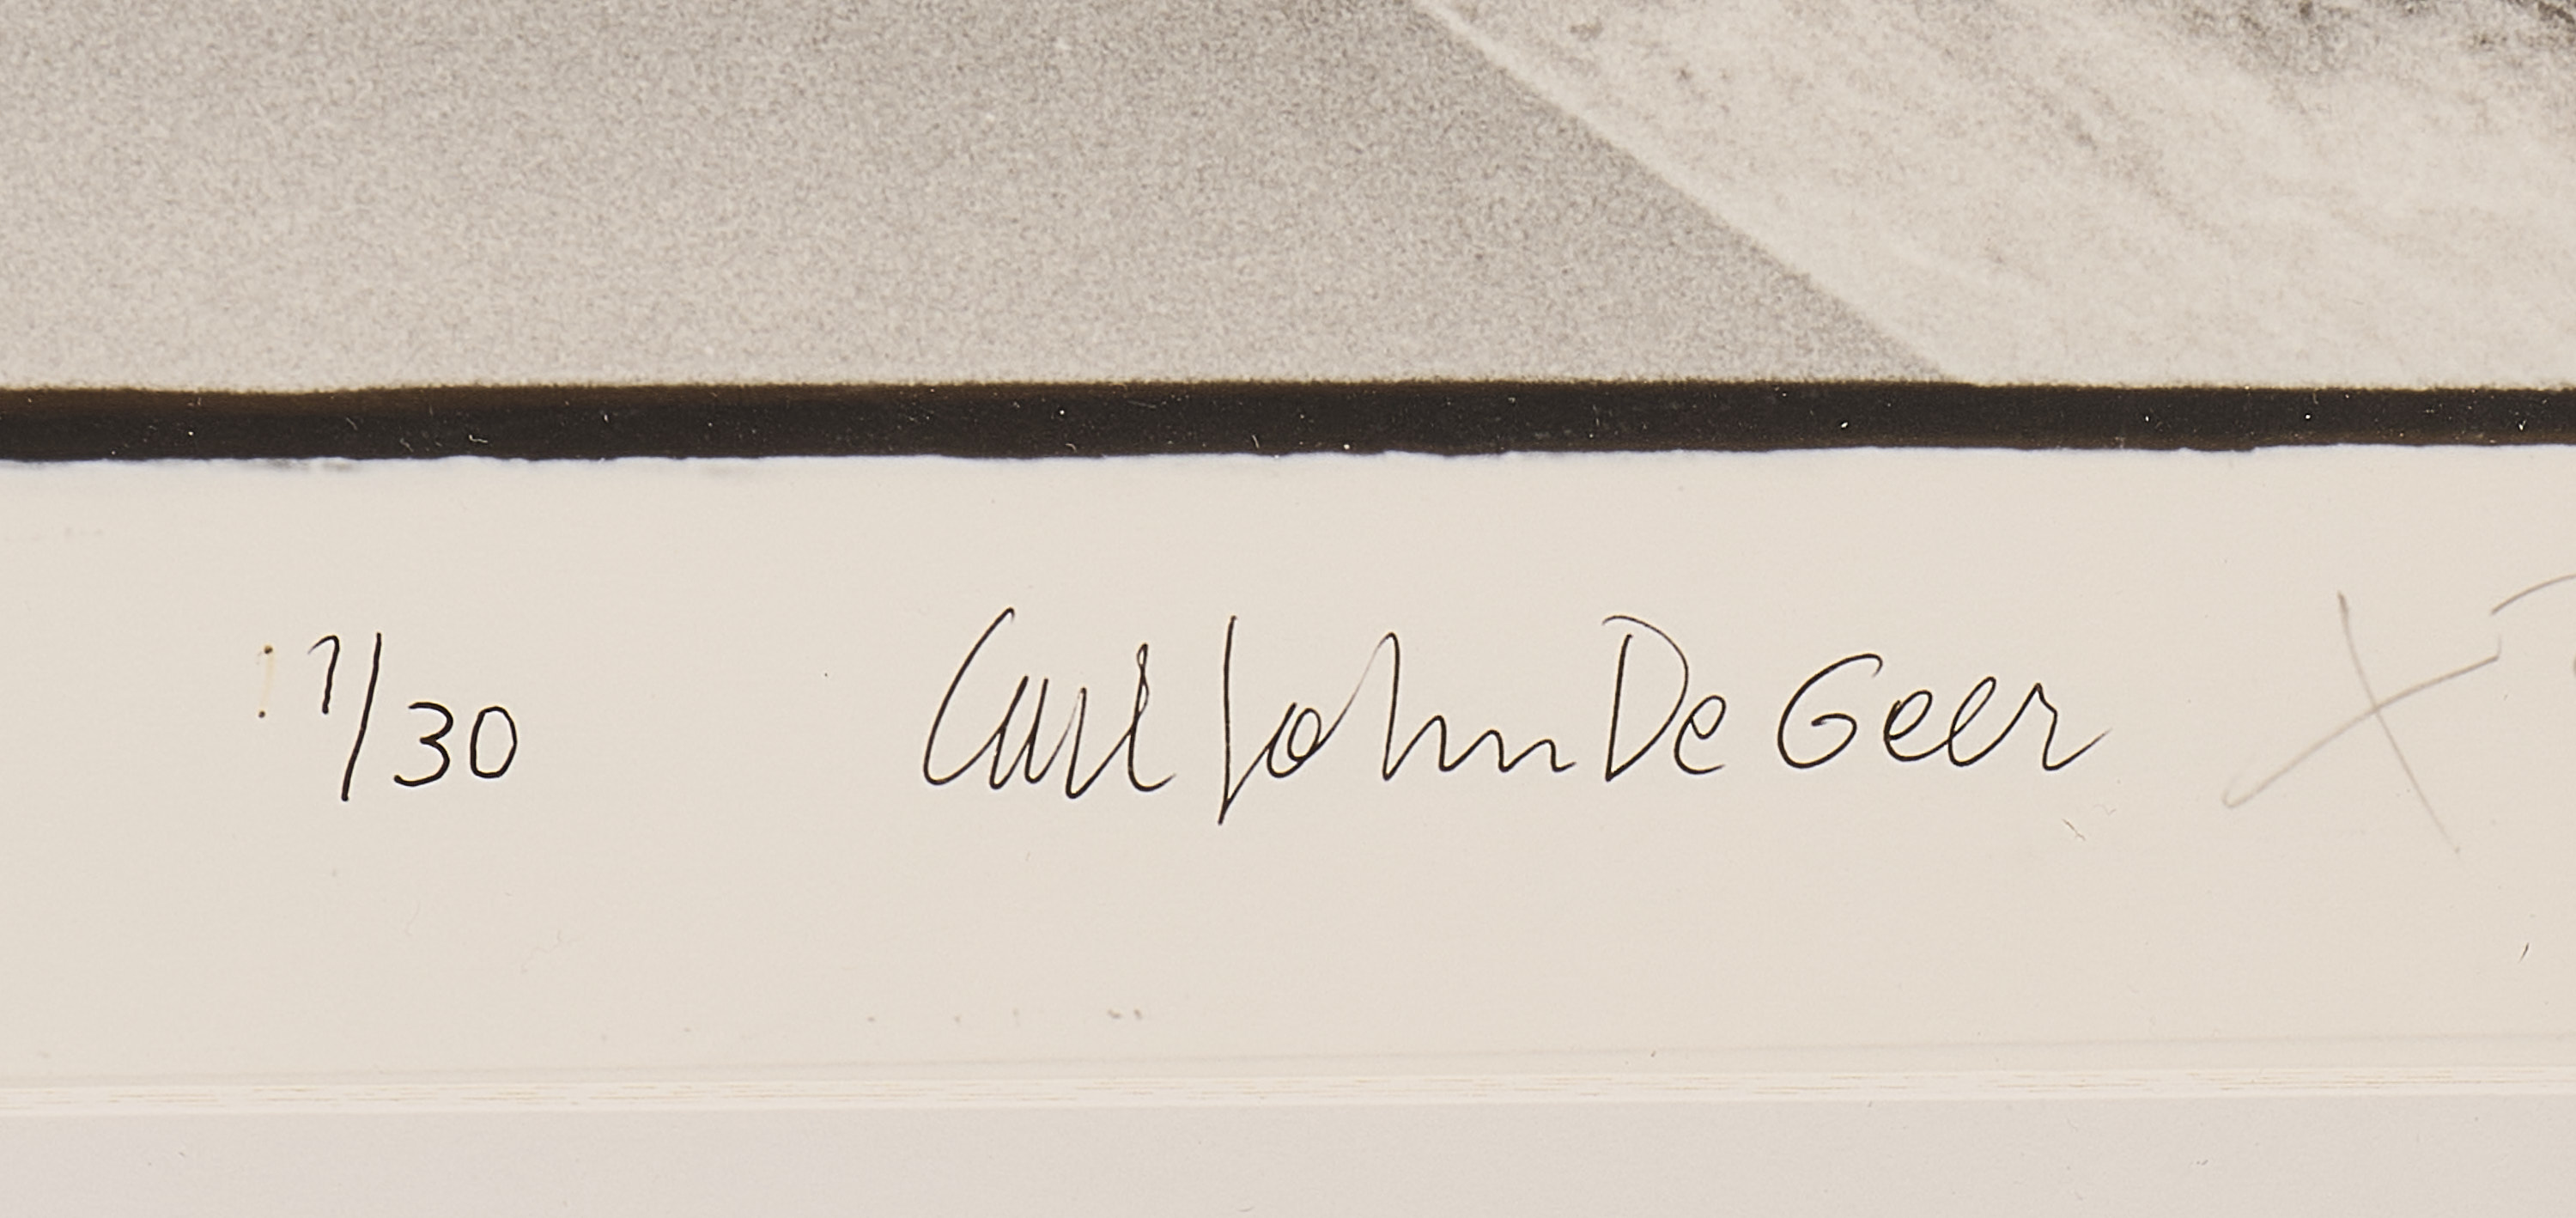 1/30 Carl Johan De Geer X